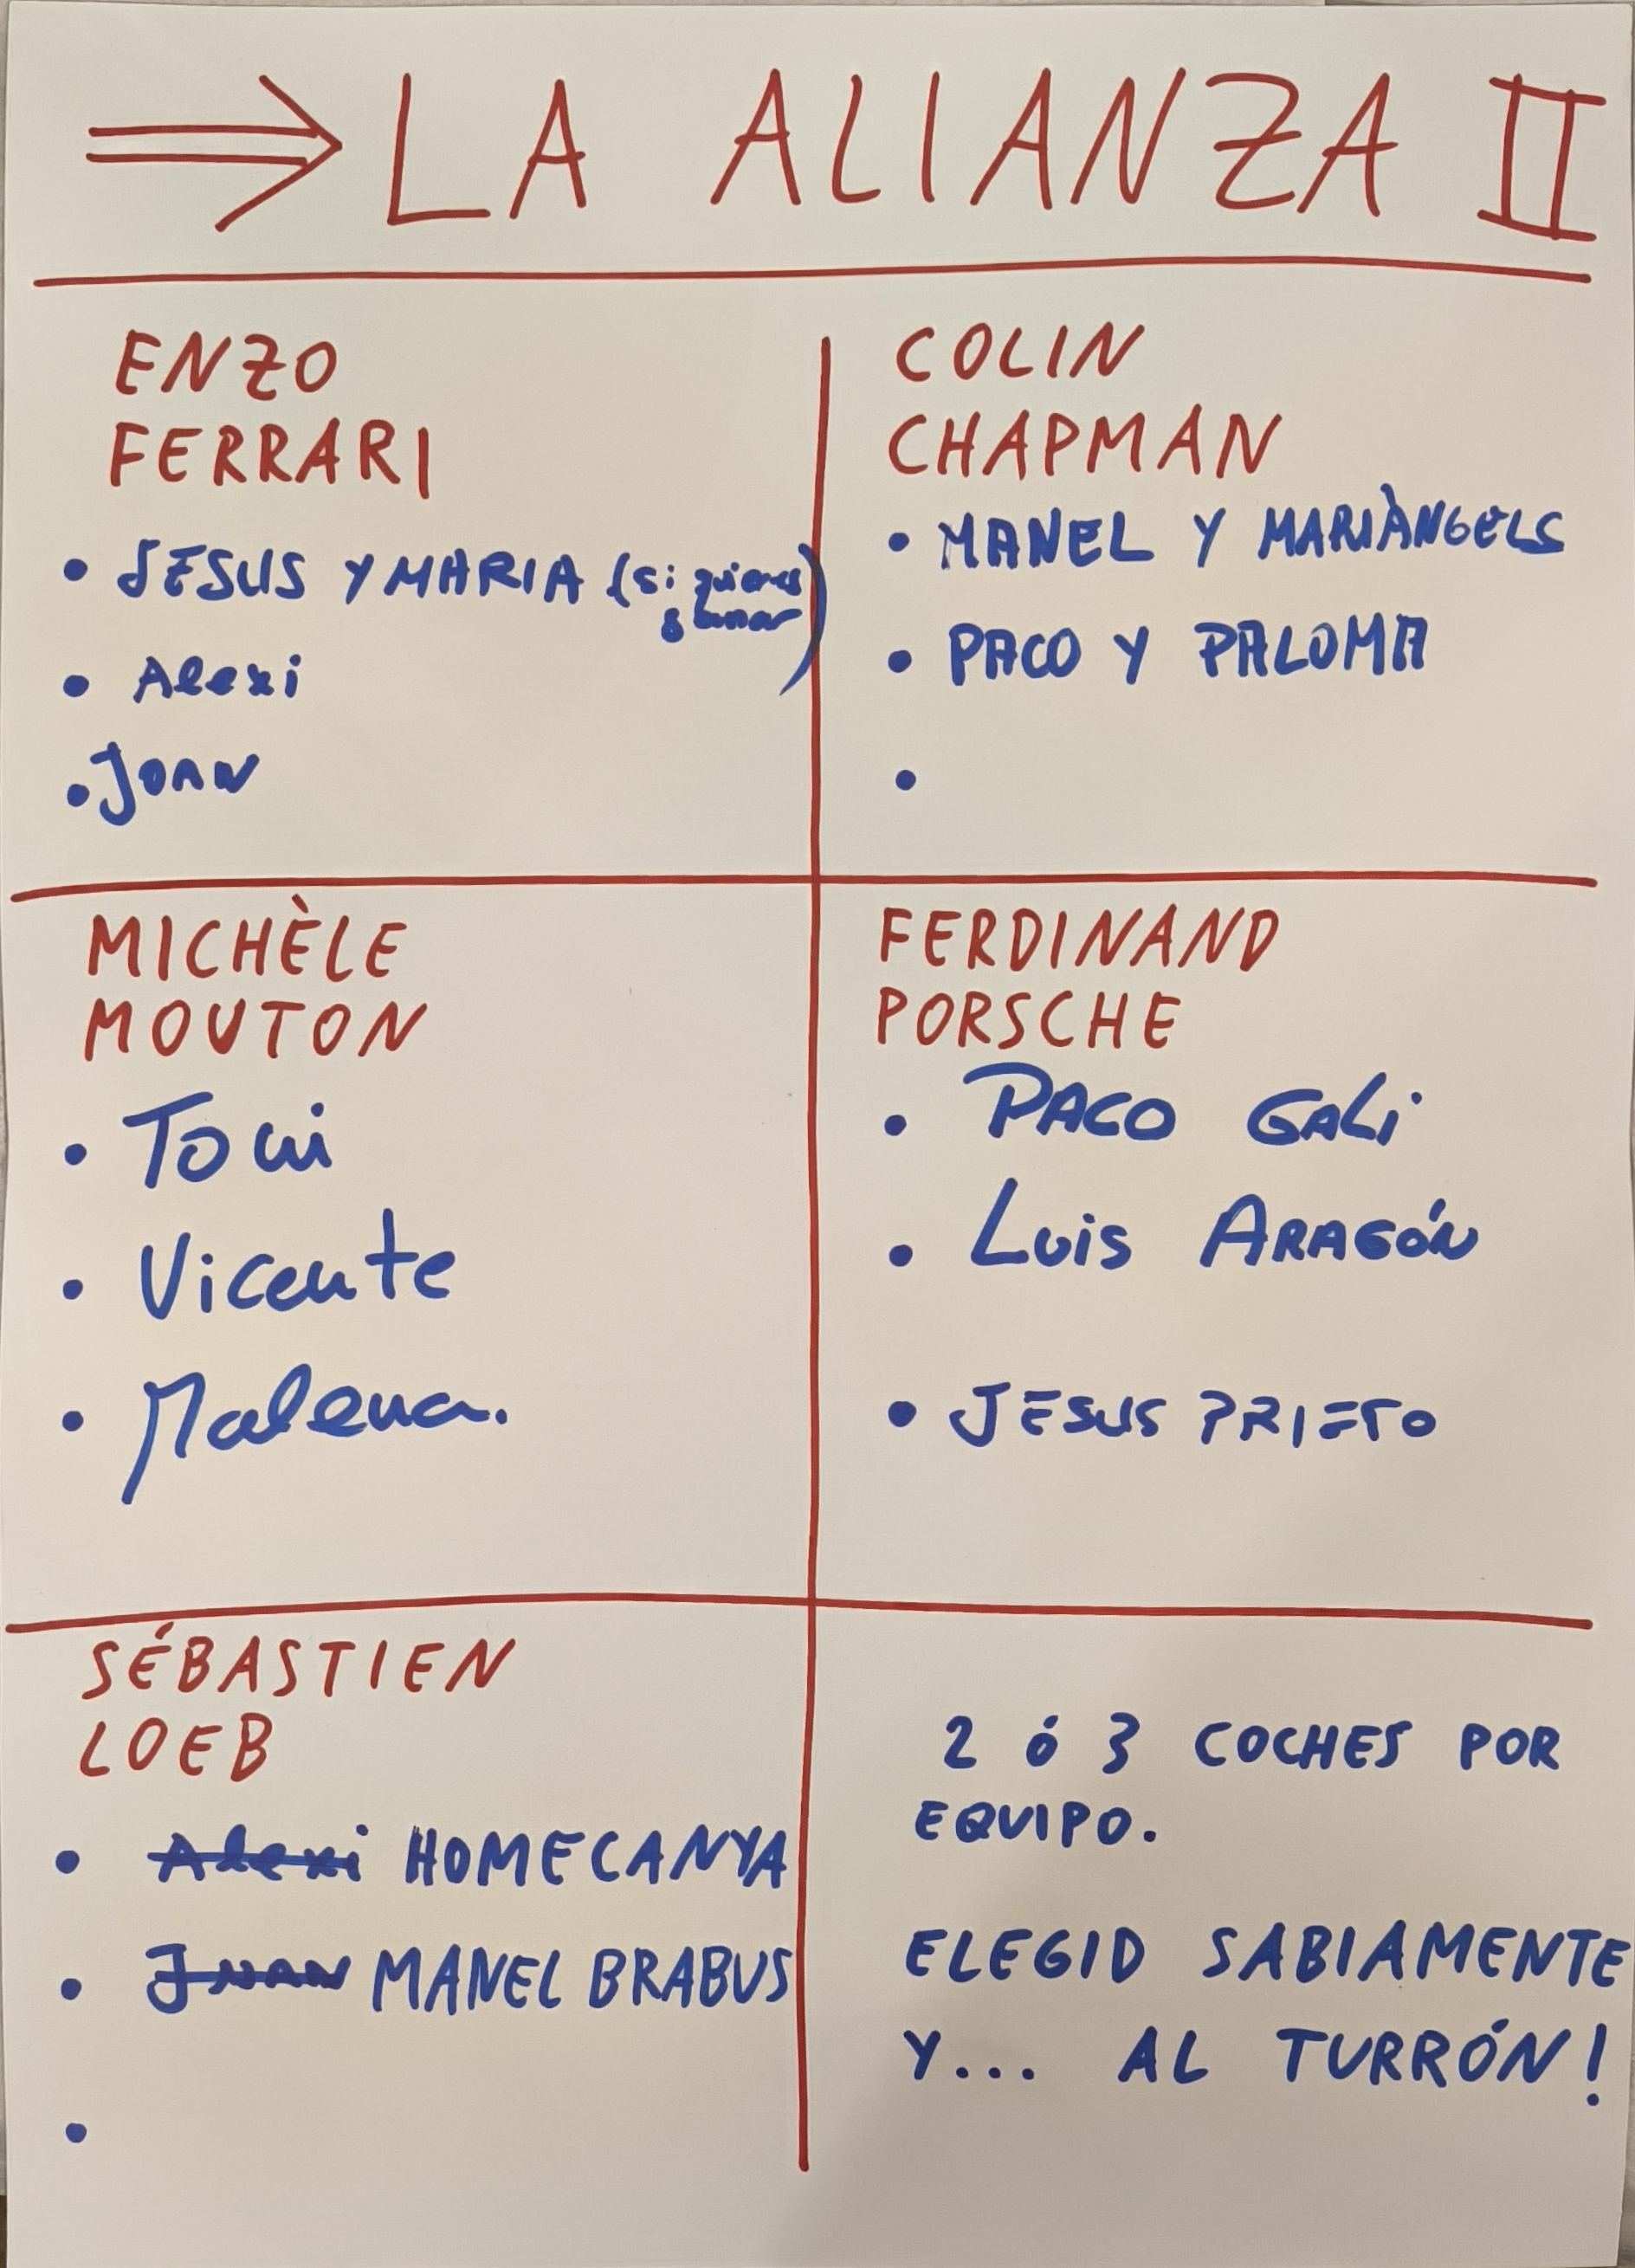 ⇒ LA ALIANZA II
ENZO
FERRARI
• JESUS Y MARIA (si quieres
ganar)
• Alexi
• JOAN
COLIN
CHAPMAN
• MANEL Y MARIÀNGELS
• PACO Y PALOMA
•
MICHÈLE
MOUTON
• Toni
• Vicente
• Malena.
FERDINAND
PORSCHE
• PACO GALi
• Luis ARAGÓN
• JESUS PRIETO
SÉBASTIEN
LOEB
• Alexi HOMECANYA
• JUAN MANEL BRABUS
•
2 ó 3 COCHES POR
EQUIPO.
ELEGID SABIAMENTE
Y... AL TURRÓN!